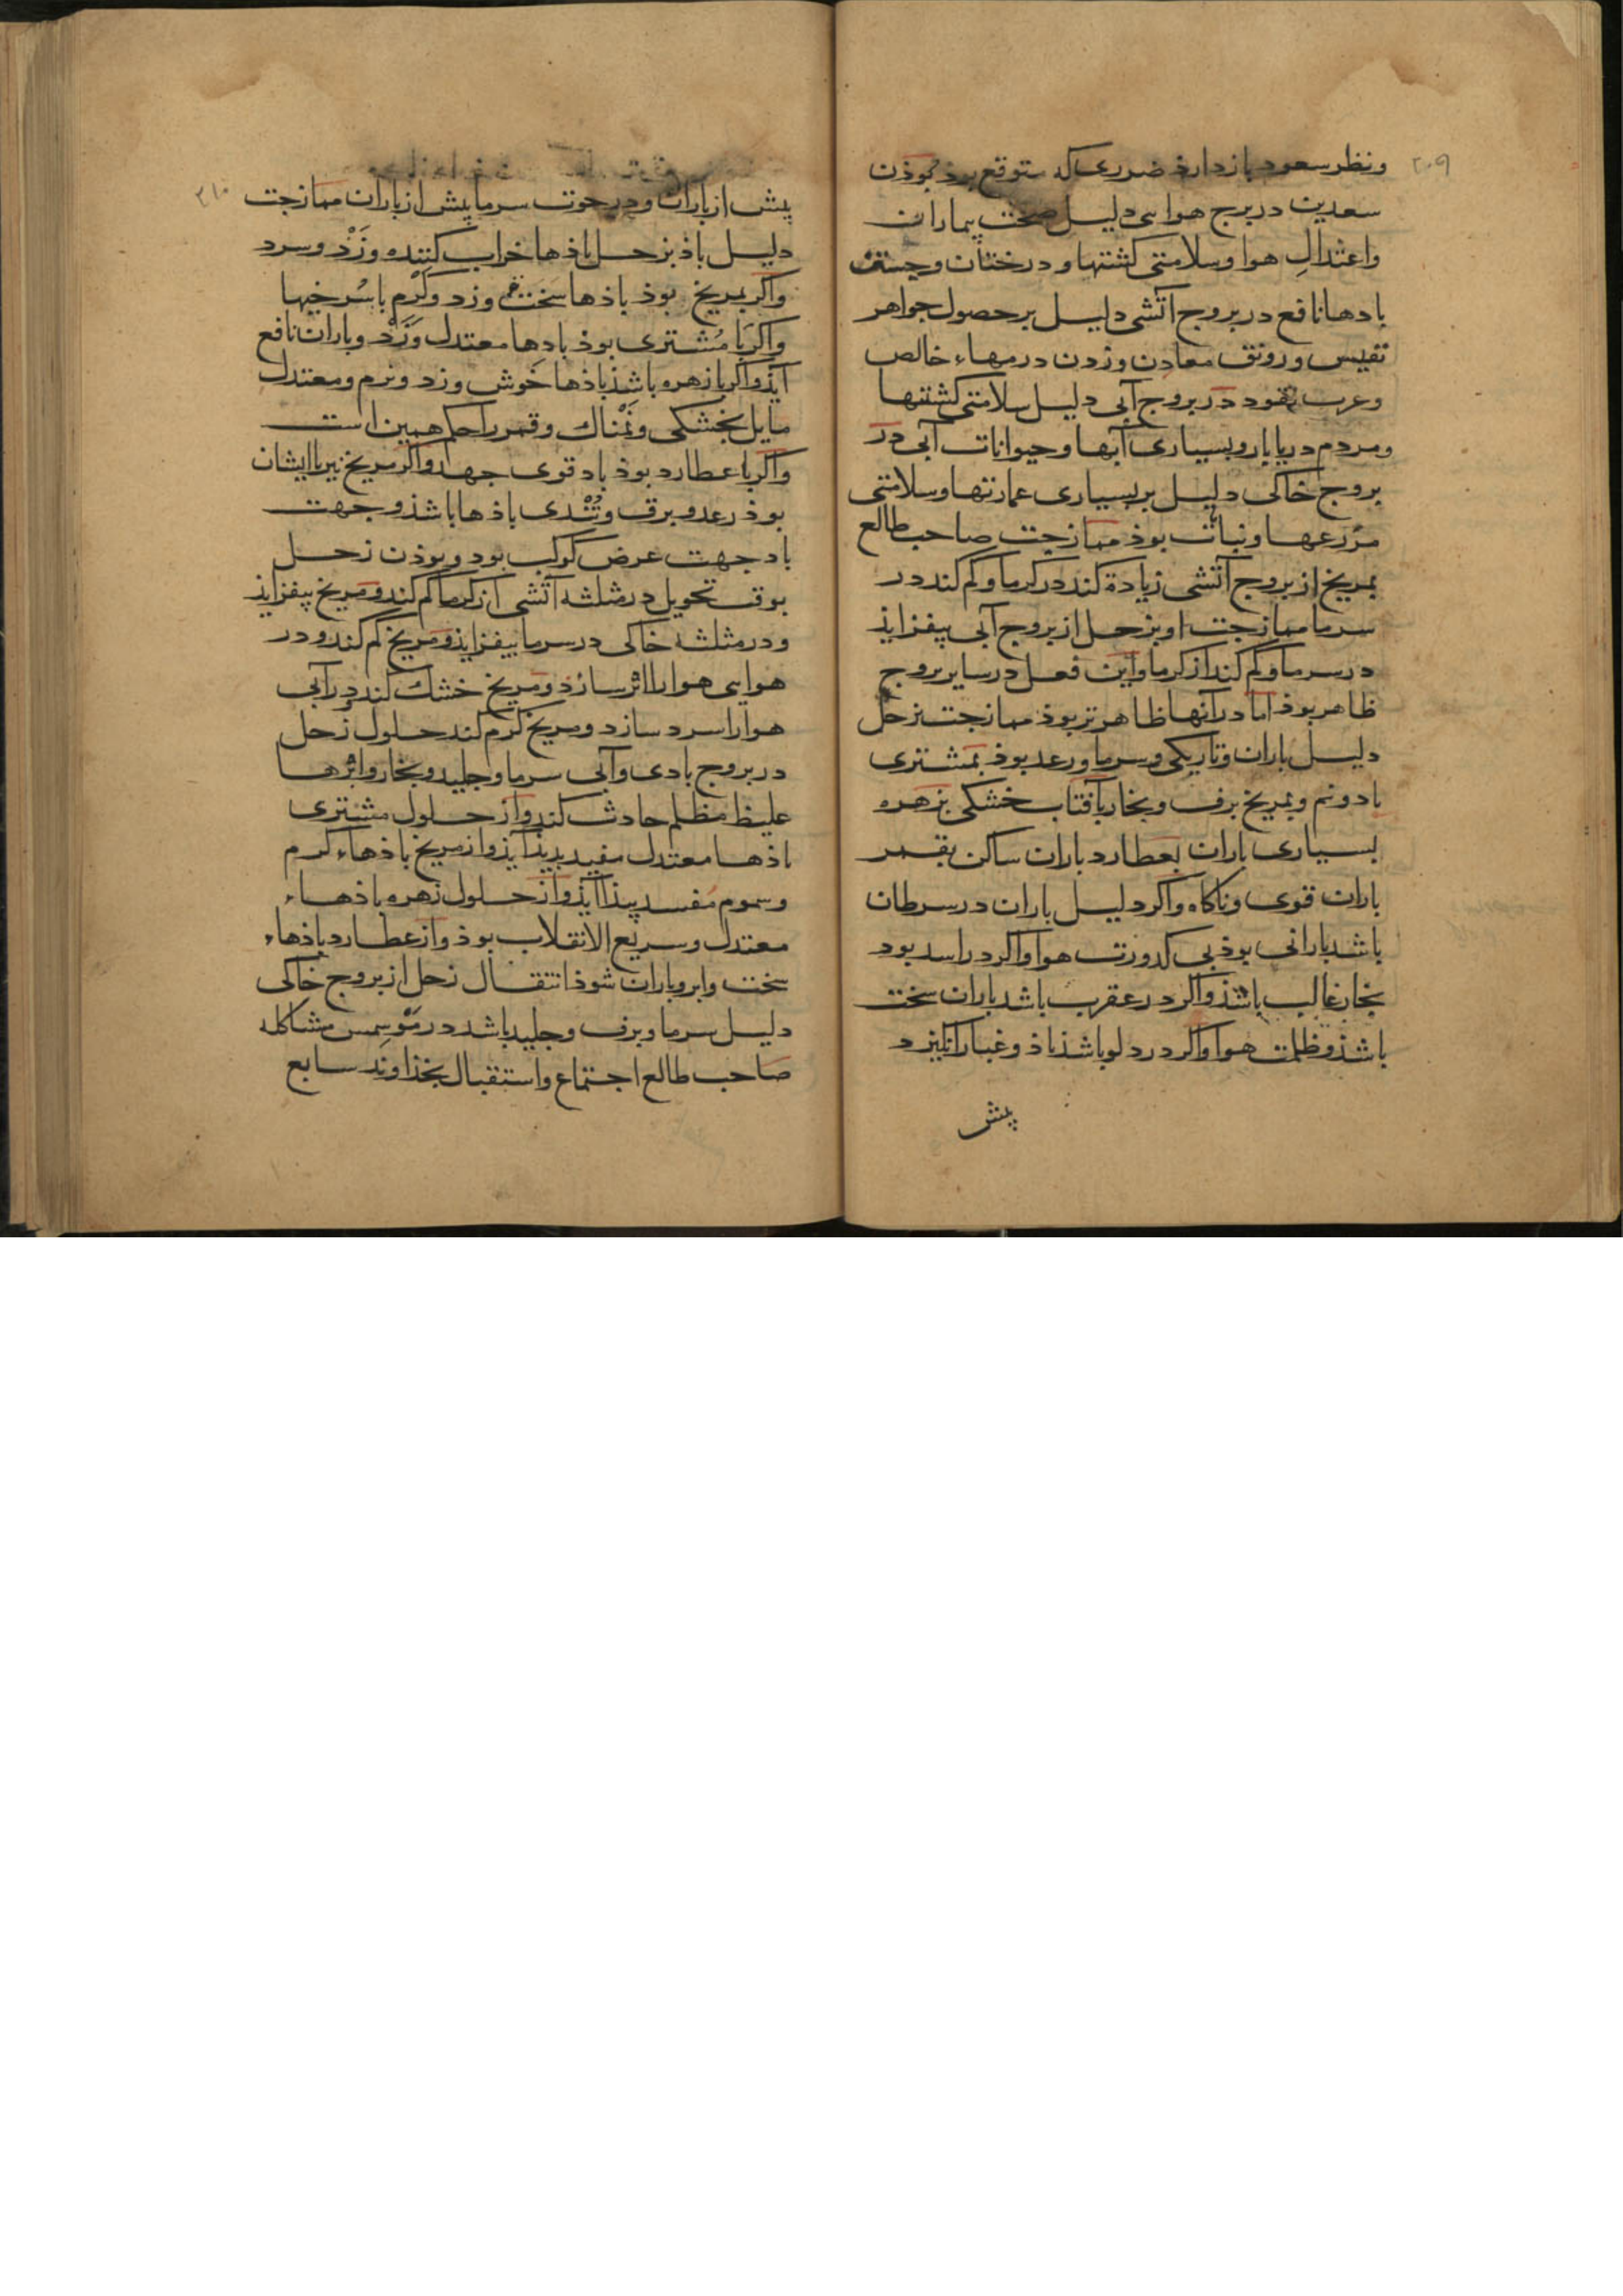 ۲۰۹
ونظر سعود بازدارذ ضرری که متوقع بوذ بوذن
سعدین در برج هوایی دلیل صحت بیماران
واعتدالِ هوا وسلامتی کشتها و درختان وجستن
بادها نافع در بروج آتشی دلیل بر حصول جواهر
نفیس ورونق معادن وزدن درمهاء خالص
وعرب نقود در بروج آبی دلیل سلامتی کشتیها
ومردم دریابار وبسیاری آبها وحیوانات آبی در
بروج خاکی دلیل بر بسیاری عمارتها وسلامتی
مزرعها ونبات بوذ ممازجت صاحب طالع
بمریخ از بروج آتشی زیادة کند در کرما وکم کند در
سرما ممازجت او بزحل از بروج آبی بیفزایذ
در سرما وکم کند از کرما واین فعل در سایر بروج
ظاهر بوذ اما در آنها ظاهرتر بوذ ممازجت بزحل
دلیل باران وتاریکی وسرما ورعد بوذ بمشتری
باد ونم وبمریخ برف وبخار بآفتاب خشکی بزهره
بسیاری باران بعطارد باران ساکن بقمر
باران قوی وناکاه واکر دلیل باران در سرطان
باشد بارانی بوذ بی کدورت هوا واکر در اسد بود
بخار غالب باشذ واکر در عقرب باشد باران سخت
باشذ وظلمت هوا واکر در دلو باشذ باذ وغبار انکیزد
پیش
۲۱۰
پیش از باران ودر حوت سرما پیش از باران ممازجت
دلیل باذ بزحل باذها خراب کننده وزَدْ وسرد
واکر بمریخ بوذ باذها سخت وزد وکرم با سُرخیها
واکر با مشتری بوذ بادها معتدل وَزَدْ وباران نافع
آیذ واکر با زهره باشذ باذها خوش وزد ونرم ومعتدل
مایل بخشکی ونمْناک وقمر را حکم همین است
واکر با عطارد بوذ باد قوی جهد واکر مریخ نیز با ایشان
بوذ رعد وبرق وتُنْدی باذها باشذ وجهت
باد جهت عرض کوکب بود وبوذن زحل
بوقت تحویل در مثلثه آتشی از کرما کم کند ومریخ بیفزایذ
ودر مثلثه خاکی در سرما بیفزایذ ومریخ کم کند ودر
هوایی هوا را اثر سازد ومریخ خشک کند در آبی
هوا را سرد سازد ومریخ کرم کند حلول زحل
در بروج بادی وآبی سرما وجلید وبخار وابرها
غلیظ مظلم حادث کند واز حلول مشتری
باذها معتدل مفید بدیذ آیذ واز مریخ باذهاء کرم
وسموم مفسد پیذا آیذ واز حلول زهره باذهاء
معتدل وسریع الانقلاب بوذ واز عطارد باذهاء
سخت وابر وباران شوذ انتقال زحل از بروج خاکی
دلیل سرما وبرف وجلید باشد در مَوْسِمش مشاکله
صاحب طالع اجتماع واستقبال بخذاوند سابع